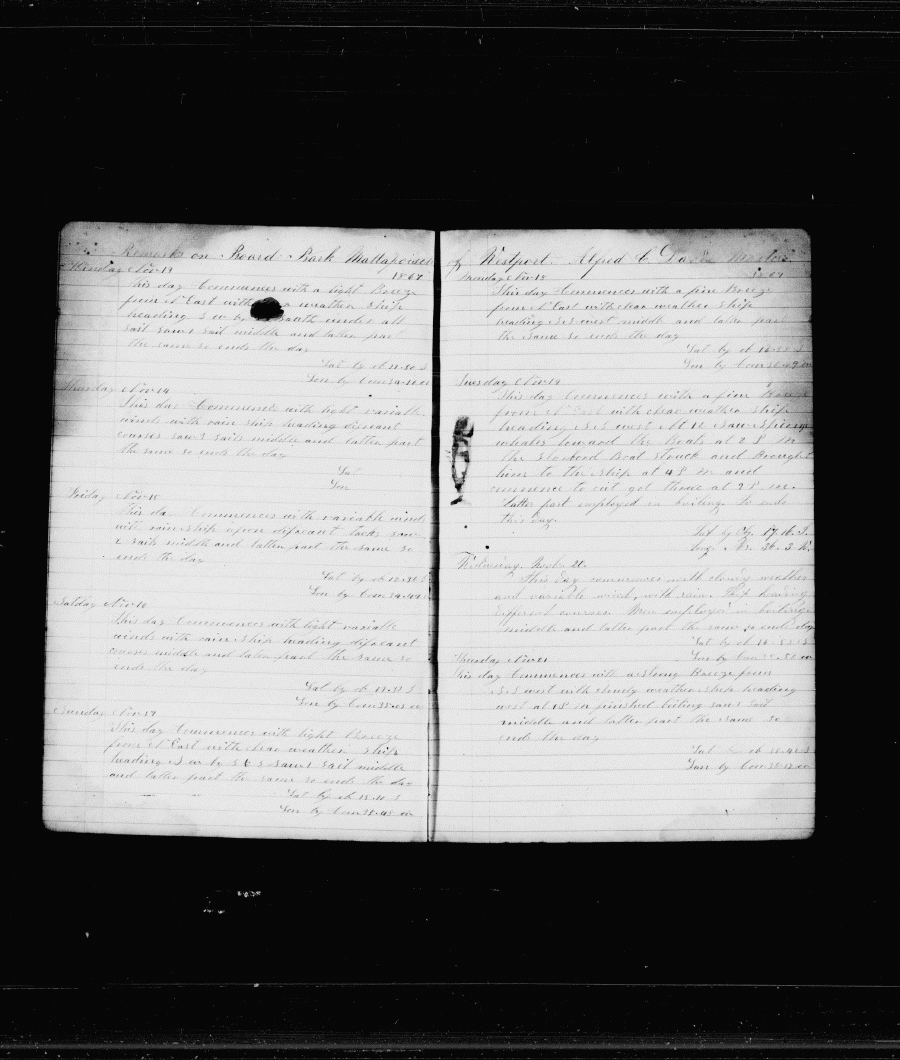 Remarks on Board Bark Mattapoisett
Nov 13 1867
This day Commences with a light Breeze
from N East with a weather Ship
heading S W by South under all
sail saw 1 sail middle and latter part
the same so ends the day
Lat by ob 11.50 S
Lon by Crom
Thursday Nov 14
This day Commences with light variable
winds with rain Ship heading different
courses saw 2 sails middle and latter part
the same so ends the day
Lat
Lon
Friday Nov 15
This day Commences with variable winds
with rain Ship upon different tacks saw
2 sails middle and latter part the same so
ends the day
Lat by ob S
Lon by Crom
Satday Nov 16
This day Commences with light variable
winds with rain Ship heading different
courses middle and latter part the same so
ends the day
Lat by ob S
Lon by Crom
Sunday Nov 17
This day Commences with light Breeze
from N East with clear weather Ship
heading S W by S saw 1 sail middle
and latter part the same so ends the day
Lat by ob S
Lon by Crom
of Westport Alfred C Davis Master
Monday Nov 18 1867
This day Commences with a fine Breeze
from N East with clear weather Ship
heading S S west middle and latter part
the same so ends the day
Lat by ob S
Lon by Crom
Tuesday Nov 19
This day Commences with a fine Breeze
from N East with clear weather Ship
heading S S west At 12 saw Sperm
whales lowered the Boats at 2 P M
the Starboard Boat Struck and Brought
him to the Ship at 4 P M and
commence to cut got through at 9 P M.
Latter part employed in boiling So ends
this day.
Lat by S.
Long
Wednesday Nov 20.
This day commences with cloudy weather
and variable wind, with rain. Ship heading
different courses. Men employed in boiling
middle and latter part the same so ends day
Lat by ob S
Lon by Crom
Thursday Nov 21
This day Commences with a Strong Breeze from
S S west with cloudy weather Ship heading
west at finished boiling saw 1 sail
middle and latter part the same so
ends the day
Lat by ob S
Lon by Crom